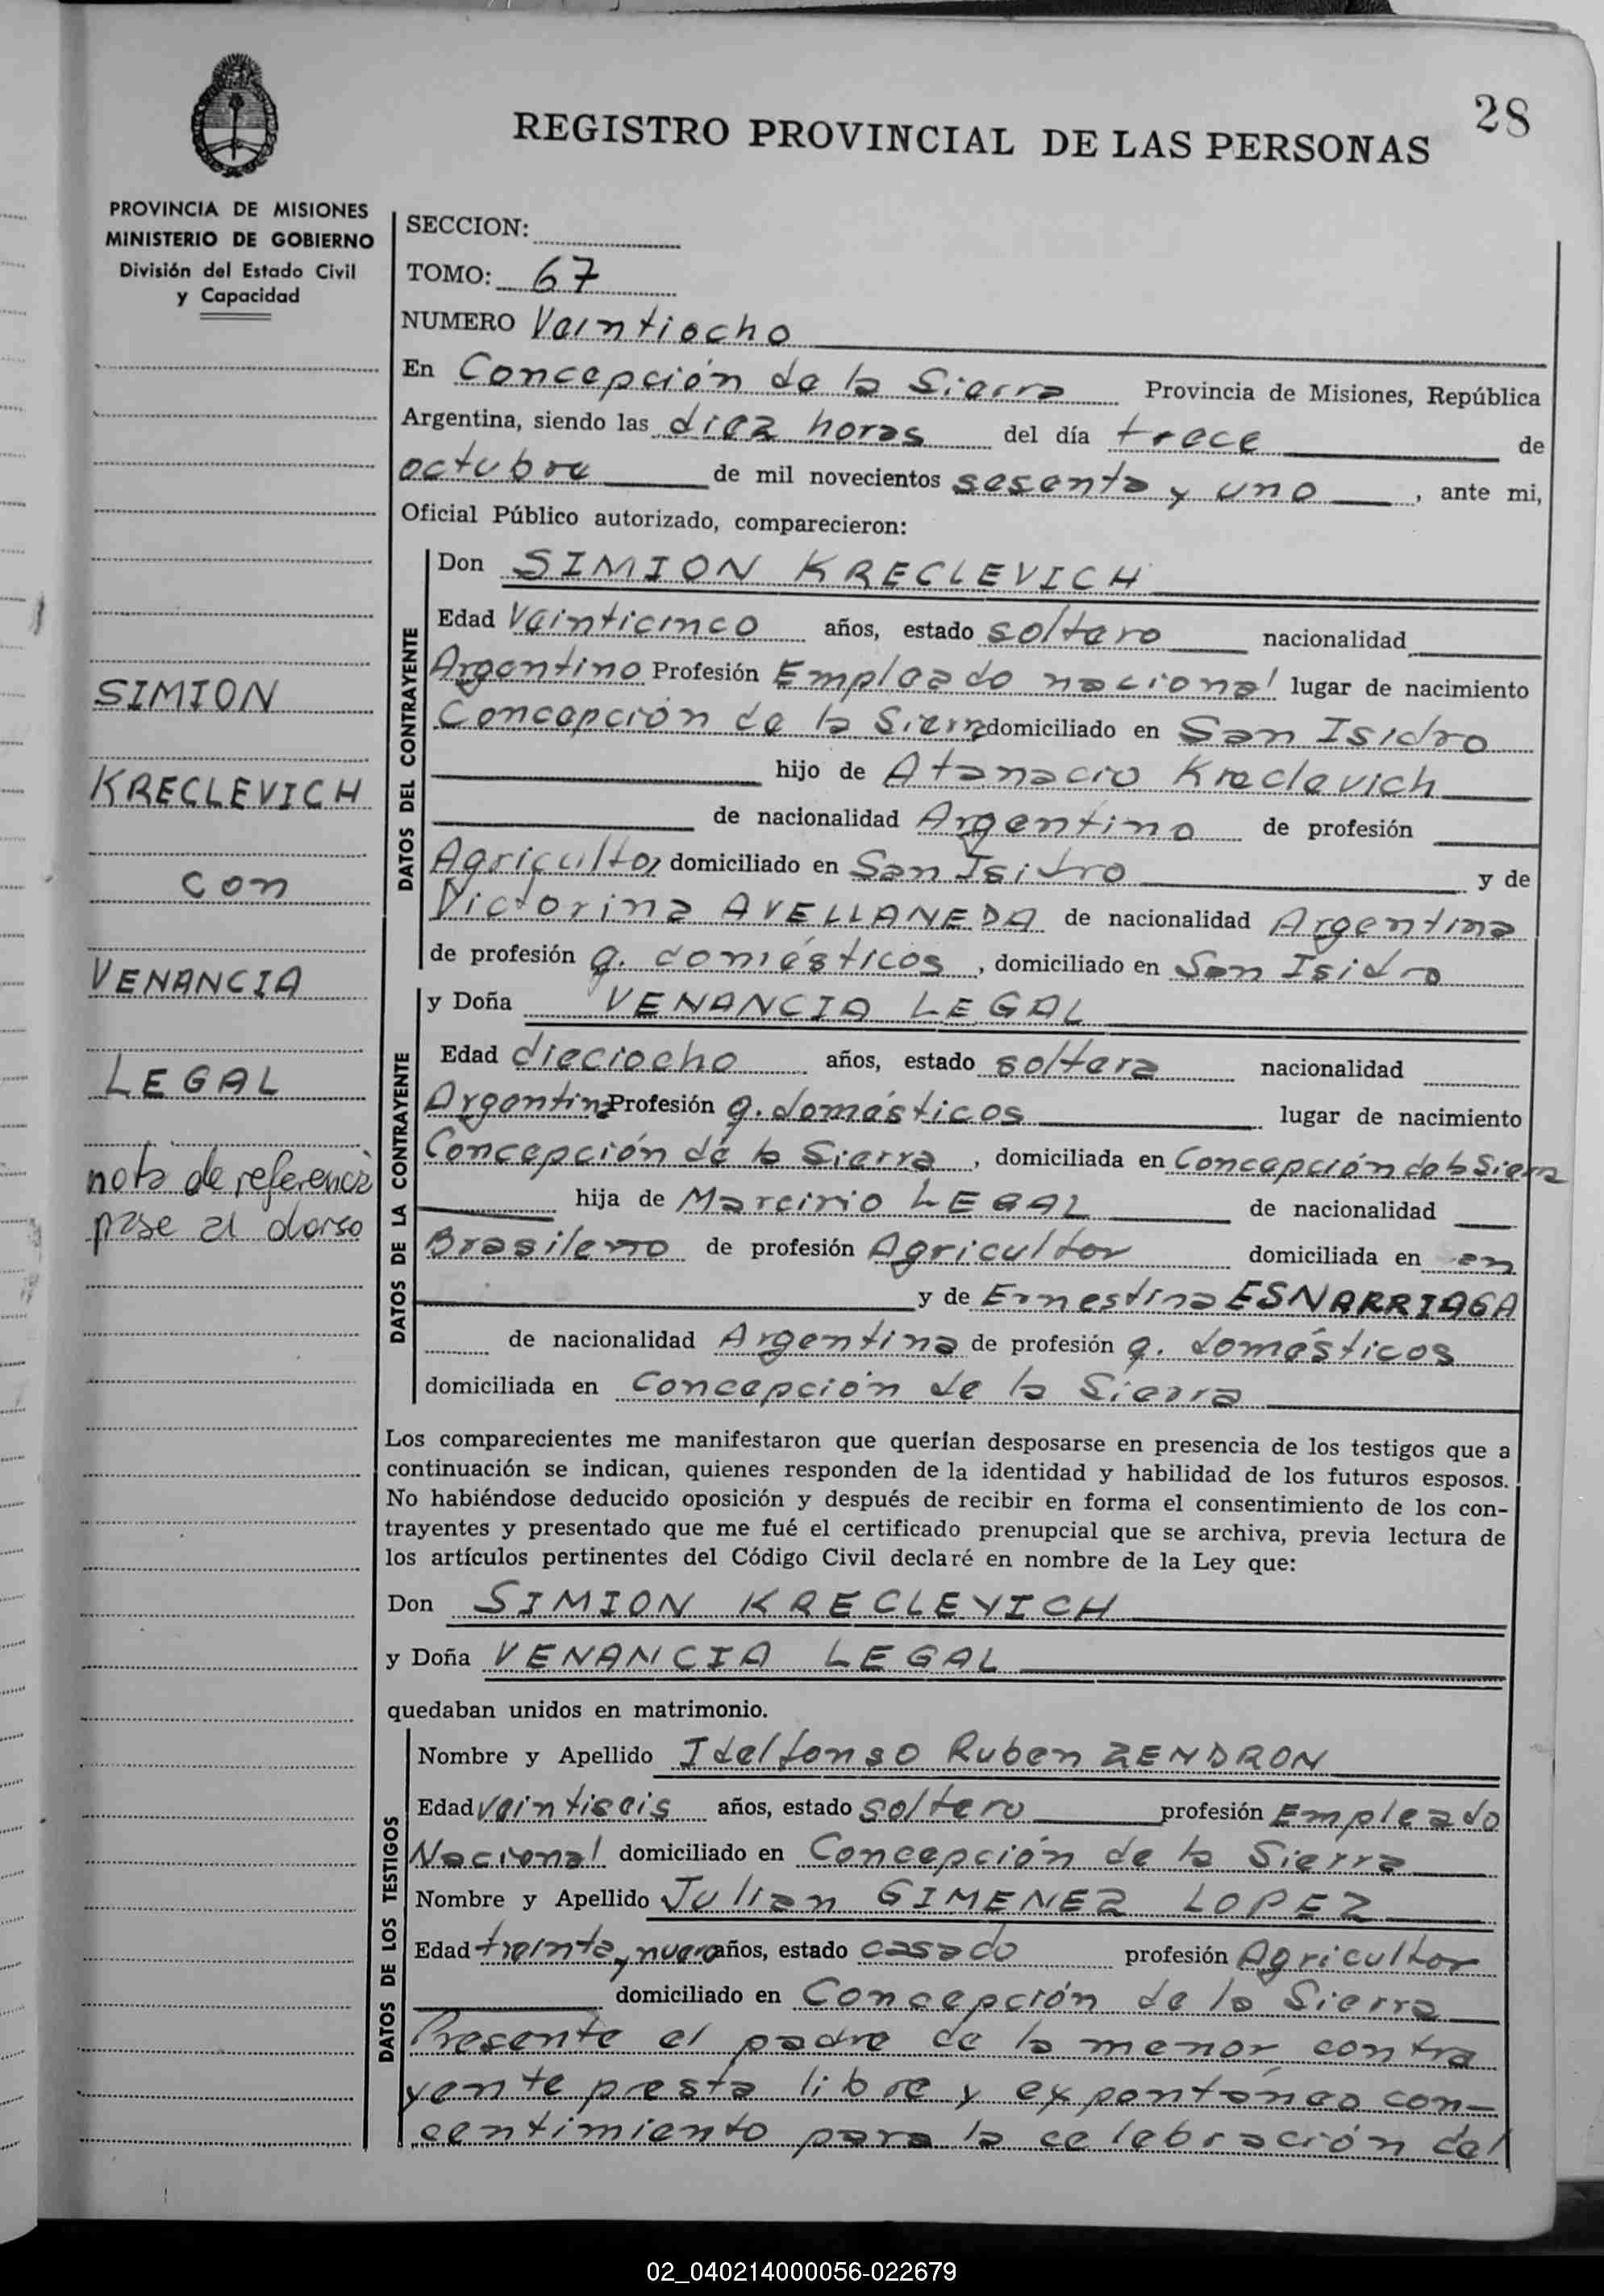 28
REGISTRO PROVINCIAL DE LAS PERSONAS
PROVINCIA DE MISIONES
MINISTERIO DE GOBIERNO
División del Estado Civil
y Capacidad
SIMION
KRECLEVICH
con
VENANCIA
LEGAL
nota de referencia
pase al dorso
SECCION:
TOMO: 67
NUMERO Veintiocho
En Concepción de la Sierra Provincia de Misiones, República
Argentina, siendo las diez horas del día trece de
octubre de mil novecientos sesenta y uno, ante mi,
Oficial Público autorizado, comparecieron:
DATOS DEL CONTRAYENTE
Don SIMION KRECLEVICH
Edad Veinticinco años, estado soltero nacionalidad
Argentino Profesión Empleado nacional lugar de nacimiento
Concepción de la Sierra domiciliado en San Isidro
hijo de Atanacio Kreclevich
de nacionalidad Argentino de profesión
Agricultor domiciliado en San Isidro y de
Victorina AVELLANEDA de nacionalidad Argentina
de profesión q. domésticos, domiciliado en San Isidro
DATOS DE LA CONTRAYENTE
y Doña VENANCIA LEGAL
Edad dieciocho años, estado soltera nacionalidad
Argentina Profesión q. domésticos lugar de nacimiento
Concepción de la Sierra, domiciliada en Concepción de la Sierra
hija de Marcirio LEGAL de nacionalidad
Brasileno de profesión Agricultor domiciliada en en
y de Ernestina ESNARRIAGA
de nacionalidad Argentina de profesión q. domésticos
domiciliada en Concepción de la Sierra
Los comparecientes me manifestaron que querían desposarse en presencia de los testigos que a
continuación se indican, quienes responden de la identidad y habilidad de los futuros esposos.
No habiéndose deducido oposición y después de recibir en forma el consentimiento de los con-
trayentes y presentado que me fué el certificado prenupcial que se archiva, previa lectura de
los artículos pertinentes del Código Civil declaré en nombre de la Ley que:
Don SIMION KRECLEVICH
y Doña VENANCIA LEGAL
quedaban unidos en matrimonio.
DATOS DE LOS TESTIGOS
Nombre y Apellido Idelfonso Ruben ZENDRON
Edad veintiseis años, estado soltero profesión Empleado
Nacional domiciliado en Concepción de la Sierra
Nombre y Apellido Julian GIMENEZ LOPEZ
Edad treinta y nueve años, estado casado profesión Agricultor
domiciliado en Concepción de la Sierra
Presente el padre de la menor contra
yente presta libre y expontáneo con-
centimiento para la celebración del
02_040214000056-022679